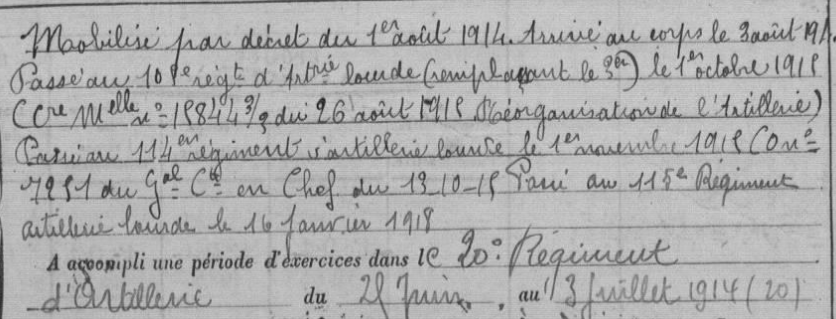 Mobilisé par décret du 1er août 1914. Arrivé au corps le 3 août 1914.
Passé au 108e régt d'Artrie lourde (remplaçant le 3e) le 1er octobre 1915
(Cre Melle no 15844 3/3 du 26 août 1915 Réorganisation de l'Artillerie)
Passé au 114e régiment d'artillerie lourde le 1er novembre 1915 (O no
7251 du Gal Ct en Chef du 13-10-15 Passé au 115e Régiment
artillerie lourde le 16 janvier 1918
A accompli une période d'exercices dans le 20e Régiment
d'Artillerie du 21 Juin, au 3 Juillet 1914 (20)